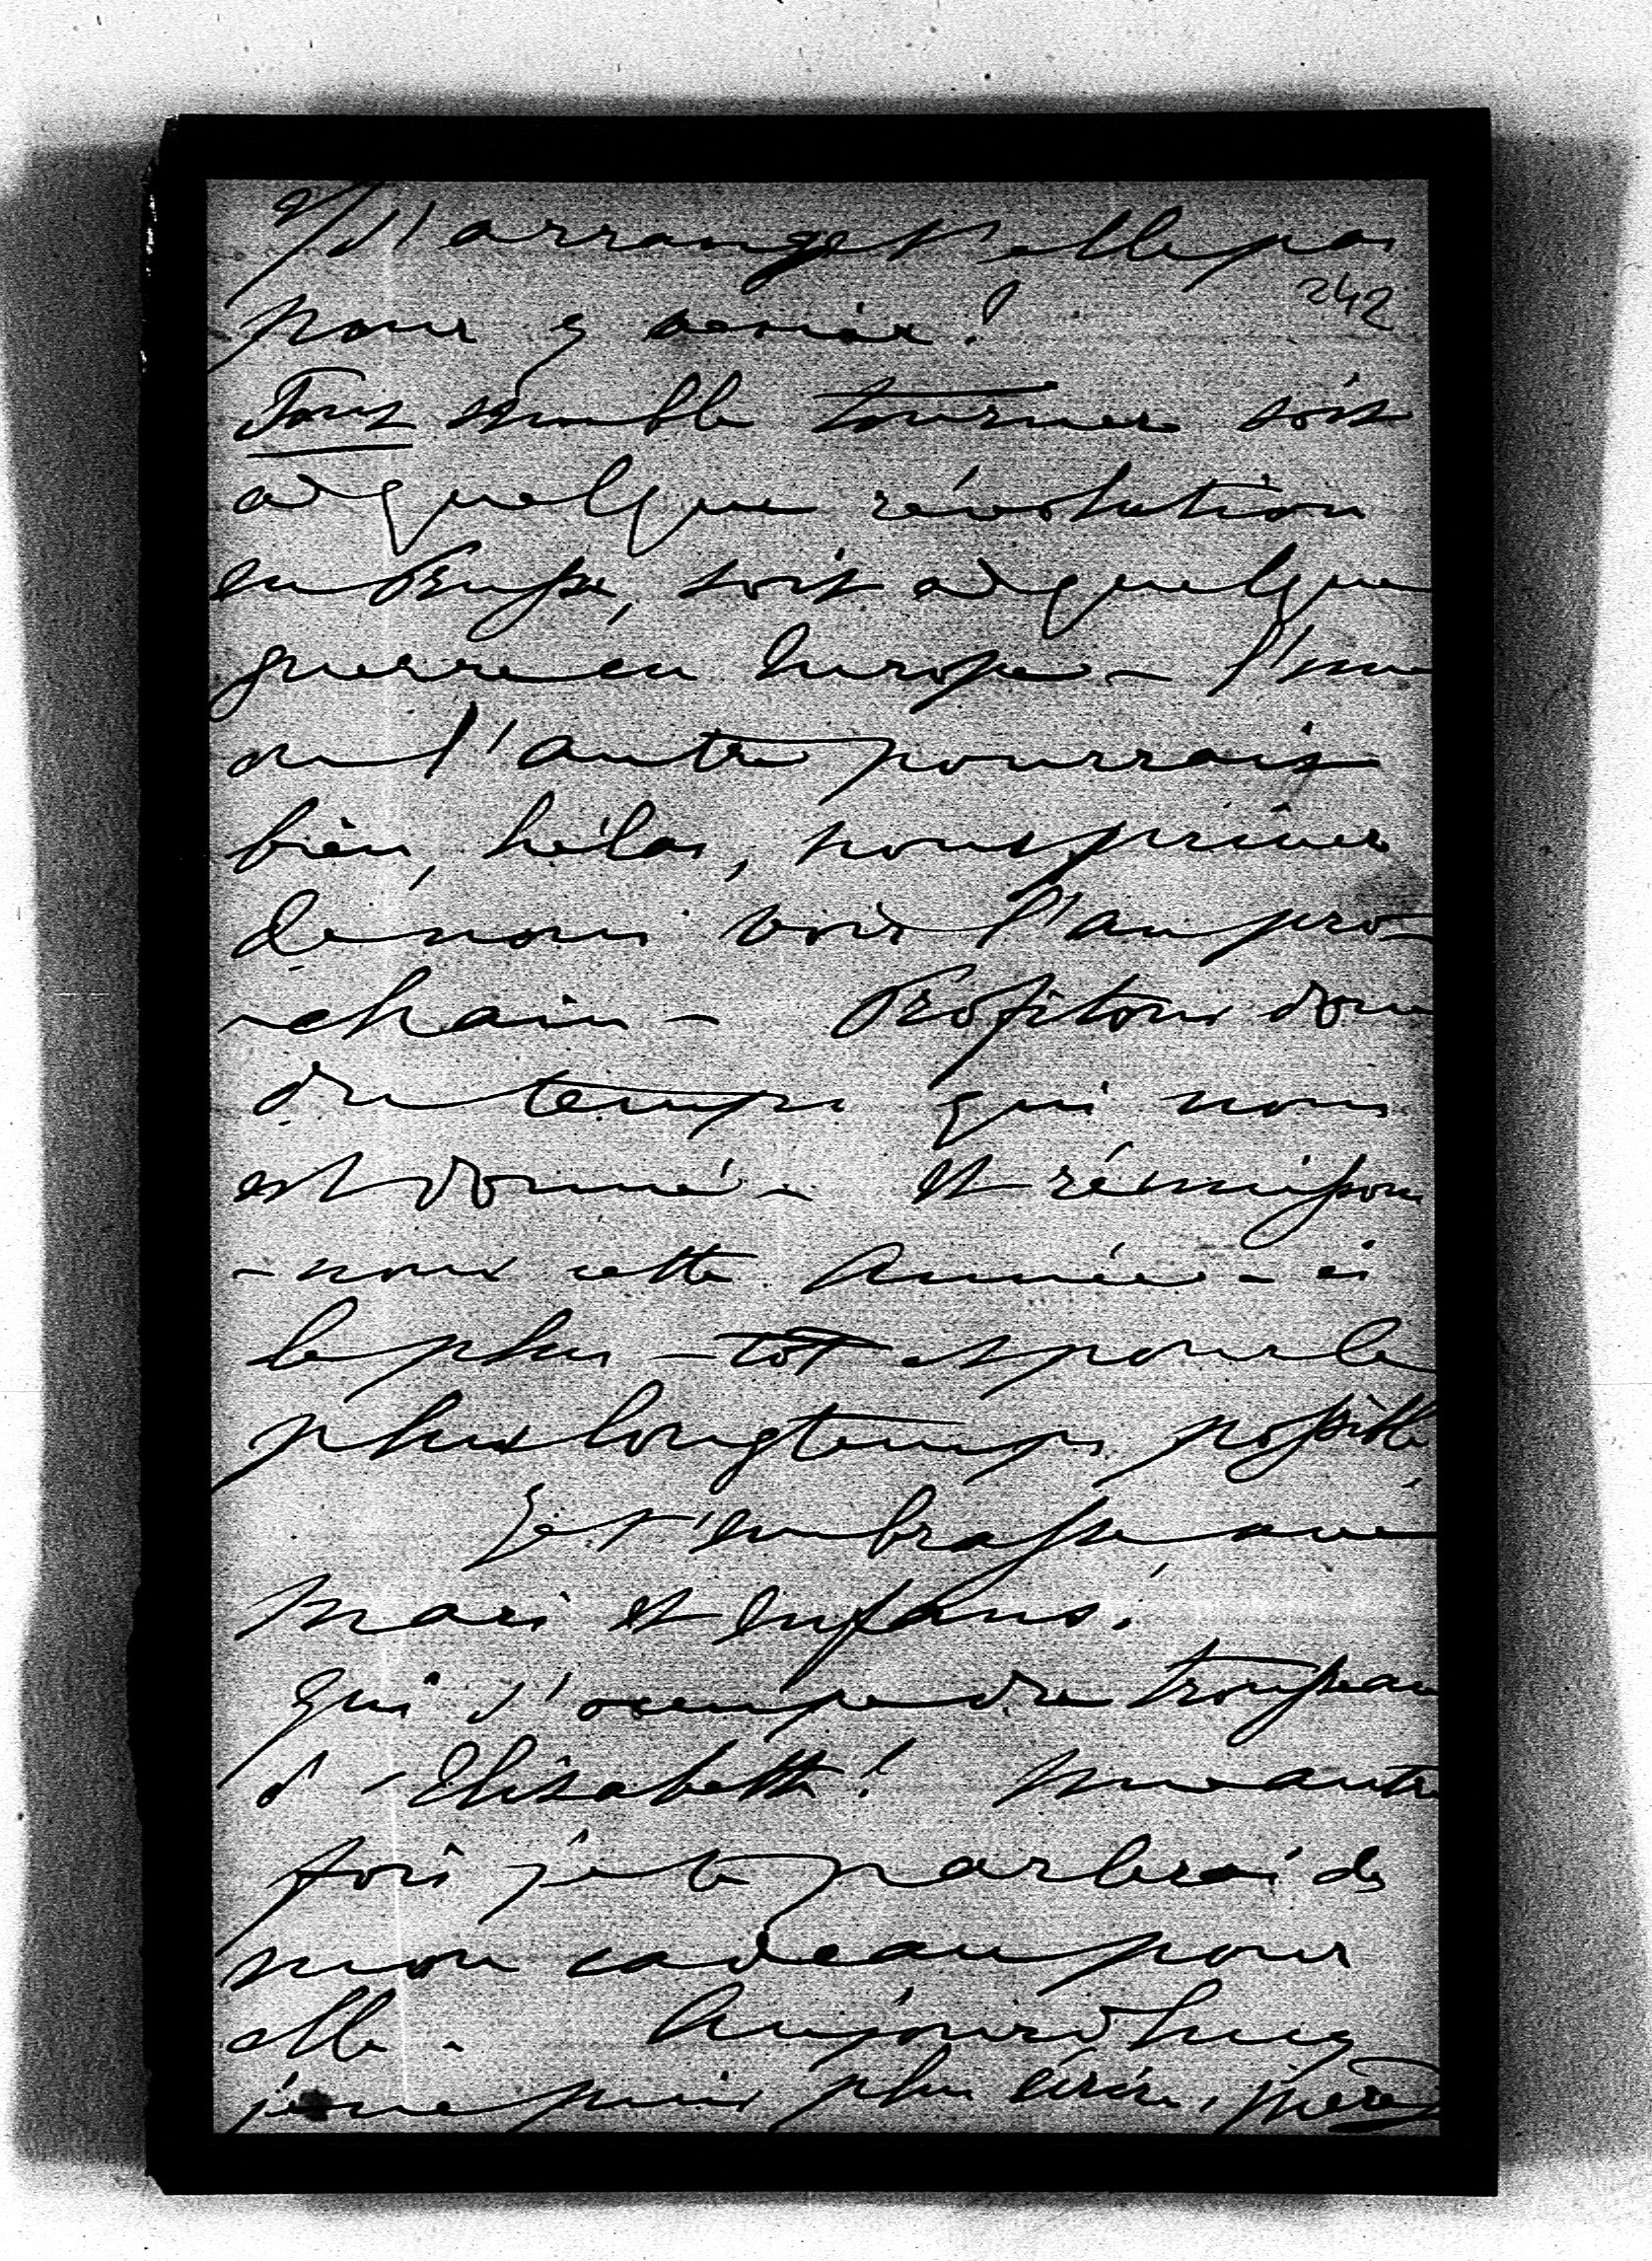 s'arrange t'elle pas
242
pour y venir!
Tout semble tourner soit
à quelque révolution
en Russie, soit à quelque
guerre en Europe – l'une
ou l'autre pourrait
bien, hélas, nous priver
de nous voir l'an pro-
-chain – Profitons donc
du temps qui nous
est donné – et réunissons
-nous cette année –
le plus-tôt et pour le
plus longtemps possible
Je t'embrasse avec
mari et enfans.
Qui s'occupe du trousseau
d'Elisabeth! Une autre
fois je te parlerai de
mon cadeau pour
elle. Aujourd'huy
je ne puis plus écrire,